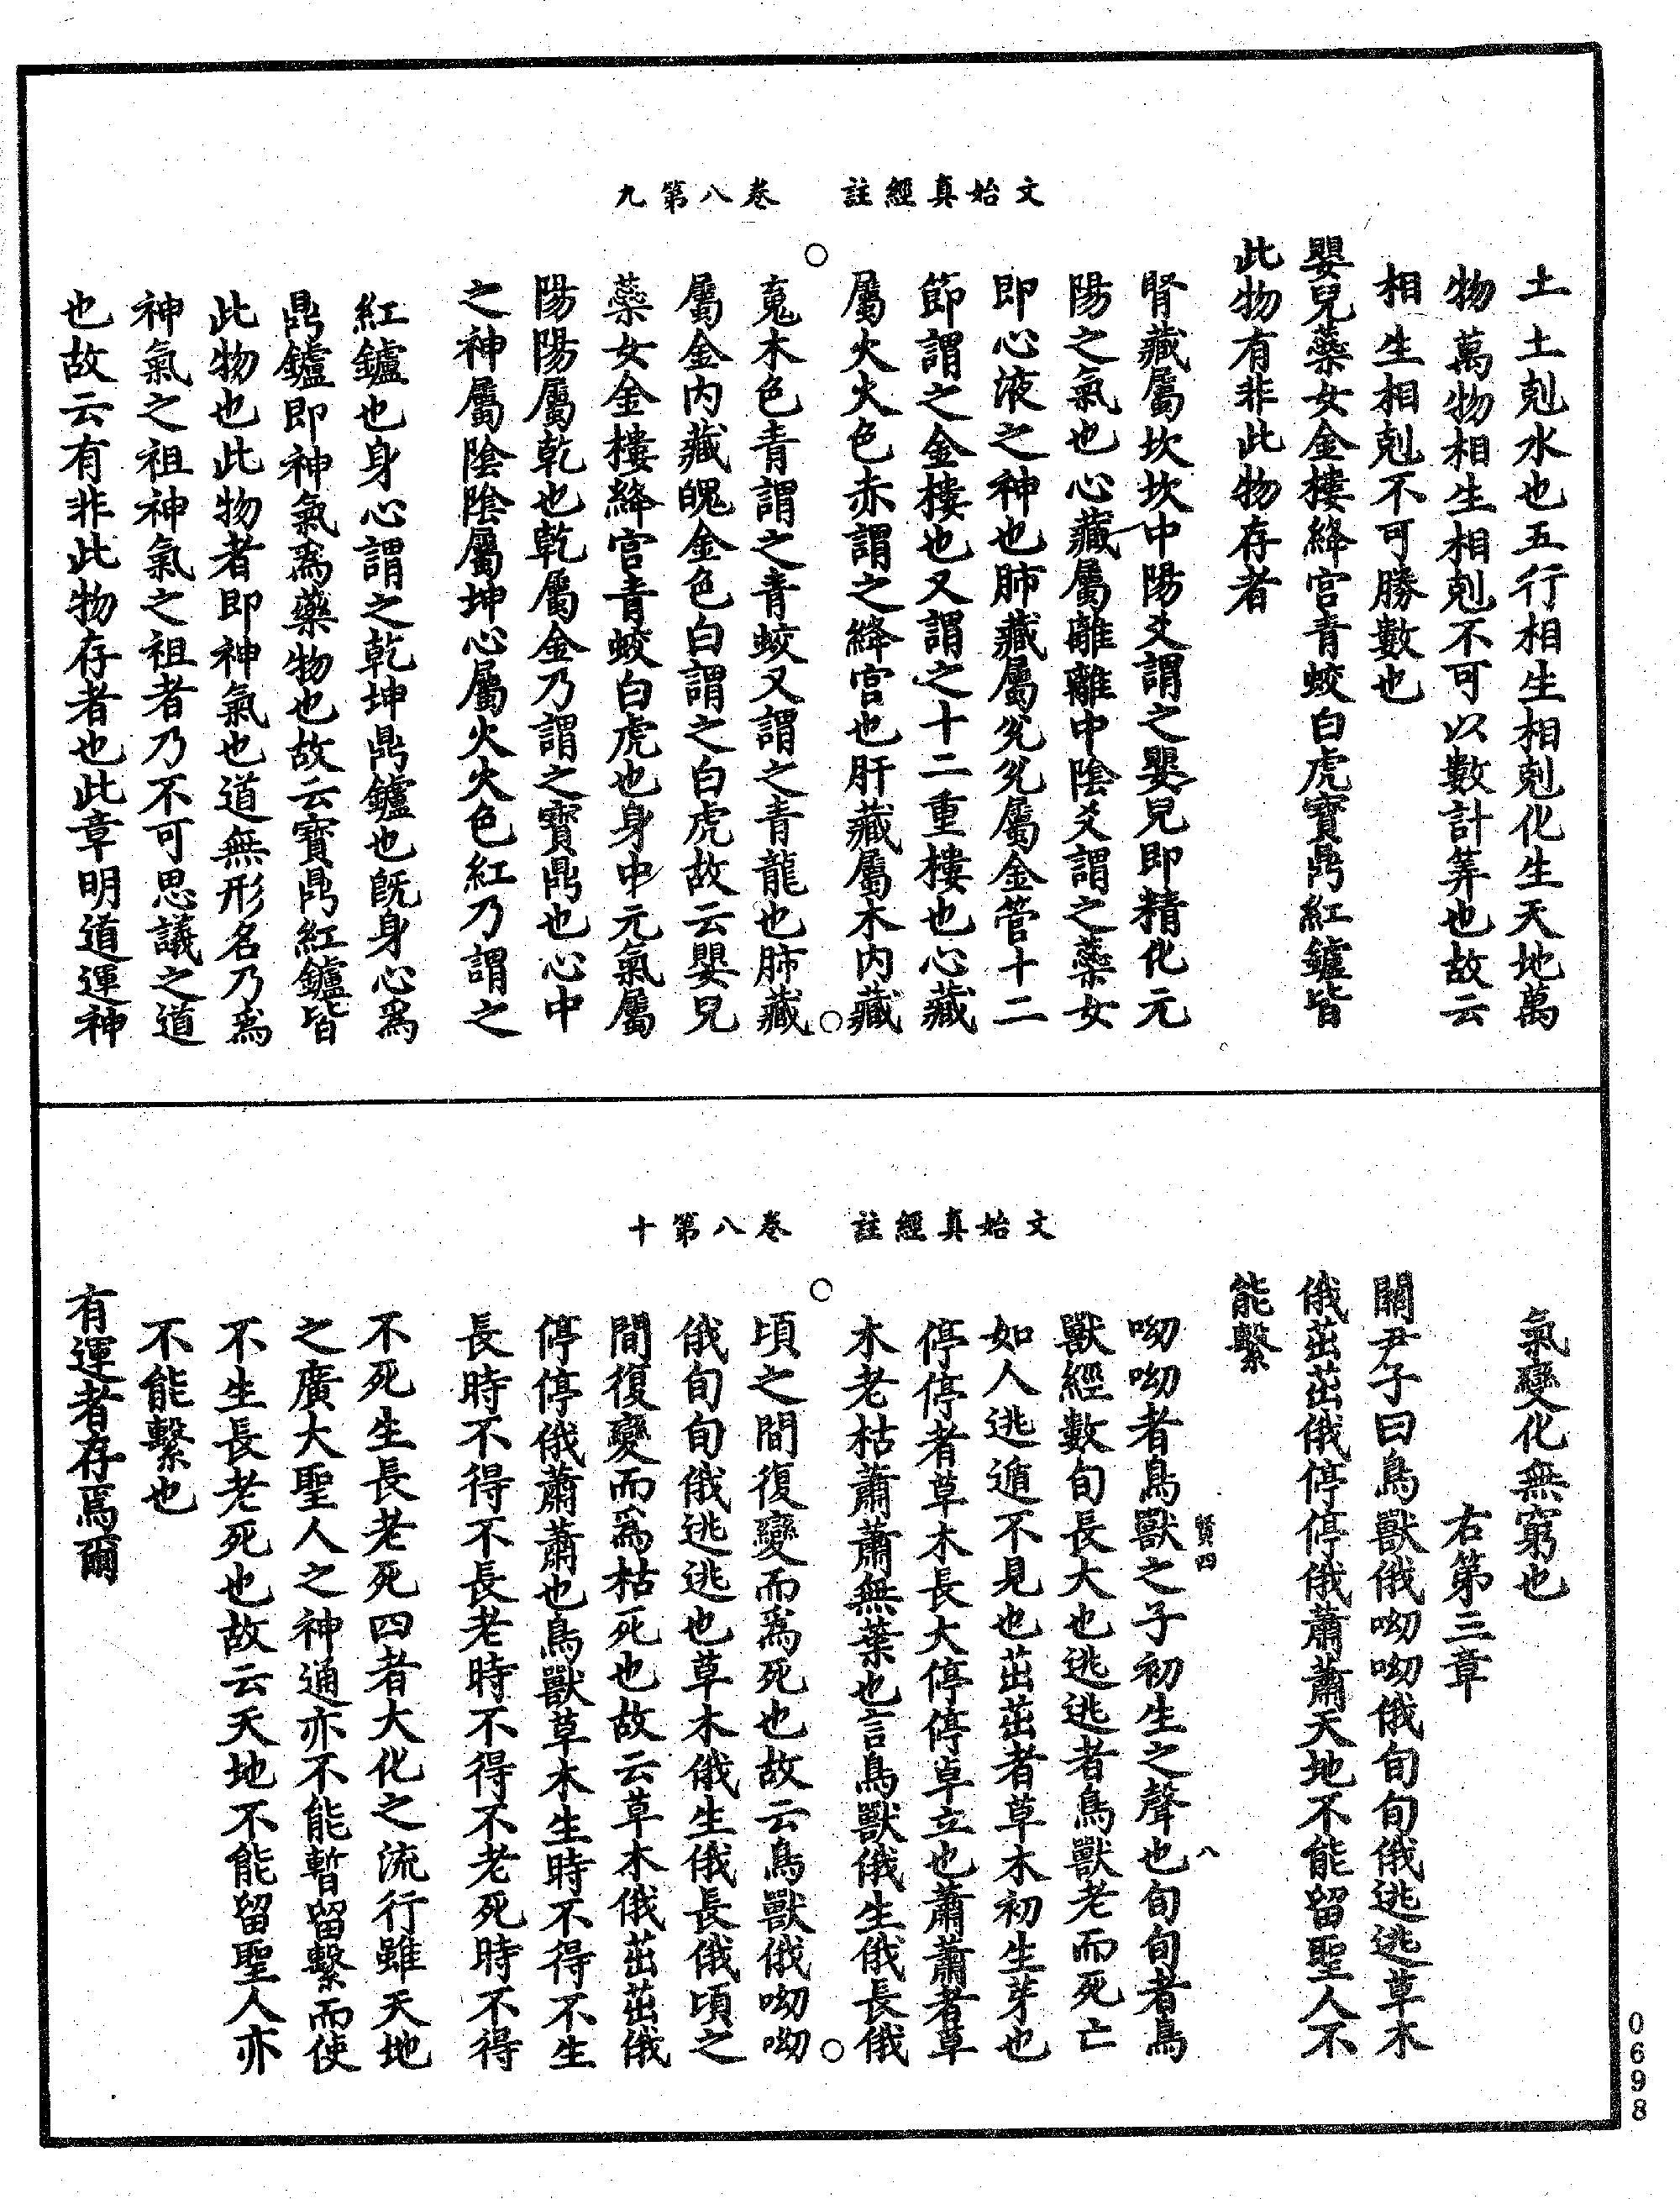 文始真經註　卷八第九
土土剋水也五行相生相剋化生天地萬
物萬物相生相剋不可以數計筭也故云
相生相剋不可勝數也
嬰兒蘂女金樓絳宮青蛟白虎寶鼎紅鑪皆
此物有非此物存者
腎藏屬坎坎中陽爻謂之嬰兒即精化元
陽之氣也心藏屬離離中陰爻謂之蘂女
即心液之神也肺藏屬兊兊屬金管十二
節謂之金樓也又謂之十二重樓也心藏
屬火火色赤謂之絳宮也肝藏屬木内藏
䰟木色青謂之青蛟又謂之青龍也肺藏
屬金内藏魄金色白謂之白虎故云嬰兒
蘂女金樓絳宮青蛟白虎也身中元氣屬
陽陽屬乾也乾屬金乃謂之寶鼎也心中
之神屬陰陰屬坤心屬火火色紅乃謂之
紅鑪也身心謂之乾坤鼎鑪也既身心爲
鼎鑪即神氣爲藥物也故云寶鼎紅鑪皆
此物也此物者即神氣也道無形名乃爲
神氣之祖神氣之祖者乃不可思議之道
也故云有非此物存者也此章明道運神
文始真經註　卷八第十
氣變化無窮也
右第三章
關尹子曰鳥獸俄呦呦俄旬旬俄逃逃草木
俄茁茁俄停停俄蕭蕭天地不能留聖人不
能繫
賢四　八
呦呦者鳥獸之子初生之聲也旬旬者鳥
獸經數旬長大也逃逃者鳥獸老而死亡
如人逃遁不見也茁茁者草木初生芽也
停停者草木長大停停卓立也蕭蕭者草
木老枯蕭蕭無葉也言鳥獸俄生俄長俄
頃之間復變而爲死也故云鳥獸俄呦呦
俄旬旬俄逃逃也草木俄生俄長俄頃之
間復變而爲枯死也故云草木俄茁茁俄
停停俄蕭蕭也鳥獸草木生時不得不生
長時不得不長老時不得不老死時不得
不死生長老死四者大化之流行雖天地
之廣大聖人之神通亦不能暫留繫而使
不生長老死也故云天地不能留聖人亦
不能繫也
有運者存焉爾
0698